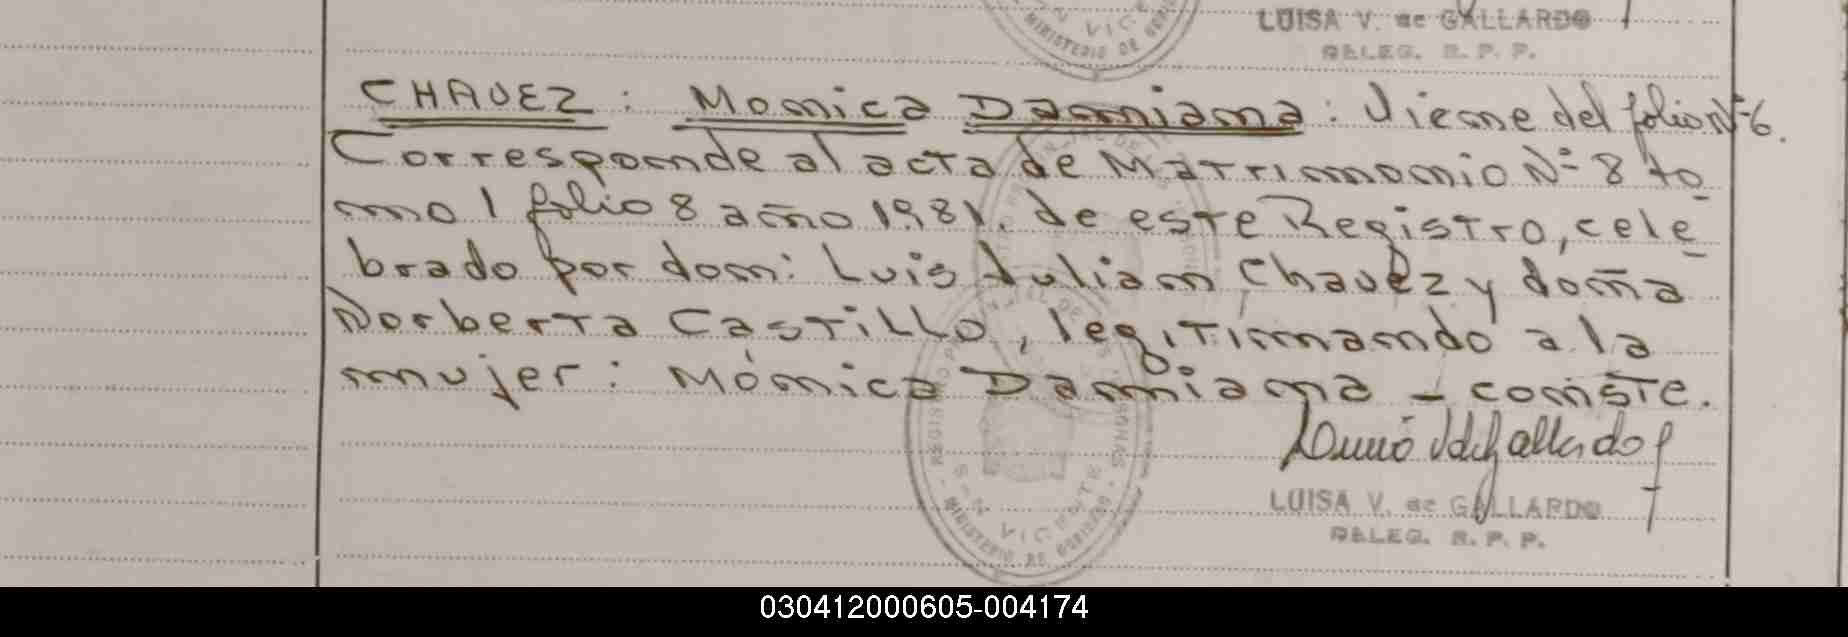 LUISA V. de GALLARDO
DELEG. R. P. P.
CHAVEZ: Monica Damiana: Viene del folio Nº 6.
Corresponde al acta de Matrimonio Nº 8 to
mo 1 folio 8 año 1981. de este Registro, cele
brado por don: Luis Julian Chavez y doña
Norberta Castillo, legitimando a la
mujer: Mónica Damiana - conste.
LUISA V. de GALLARDO
DELEG. R. P. P.
SAN VICENTE
MINISTERIO DE GOBIERNO
030412000605-004174